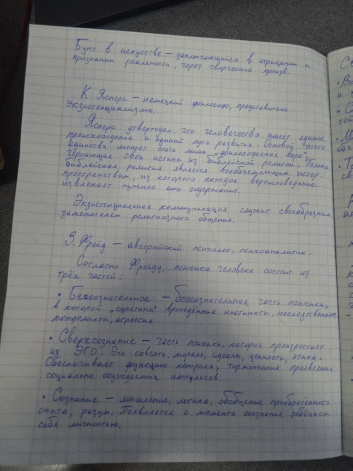 Бунт в искусстве – заключающийся в отрицании и
признании реальности, через творческие произв.
К. Ясперс – немецкий философ, представитель
Экзистенциализма.
Ясперс утверждал, что человечество имеет единое
происхождение и единый путь развития. Основой такого
единства может стать лишь „философская вера",
черпающая свои истоки из библейской религии. Только
библейская религия является всеобъемлющим истор.
пространством, из которого каждое вероисповедание
извлекает нужное ему содержание.
Экзистенциальная коммуникация служит своеобразным
заменителем религиозного общения.
З. Фрейд – австрийский психолог, психоаналитик.
Согласно Фрейду, психика человека состоит из
трёх частей:
• Бессознательное – бессознательная часть психики,
в которой „спрятаны" врождённые инстинкты, наследственность,
менталитет, агрессия
• Сверхсознание – часть психики, которая произрастает
из ЭГО. Это совесть, мораль, идеалы, ценность, этика.
Обеспечивает функцию контроля, торможения проявления
социально осуждаемых импульсов.
• Сознание – мышление, логика, обобщение приобретённого
опыта, разум. Появляется с момента осознания
себя личностью.